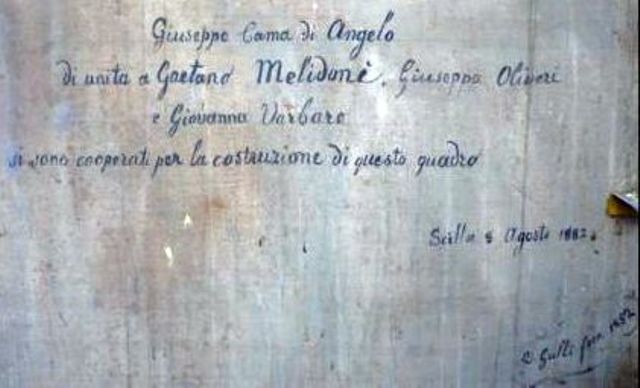 Giuseppe Cama di Angelo
di unita a Gaetano Melidonè, Giuseppa Oliveri
e Giovanna Varbaro
si sono cooperati per la costruzione di questo quadro
Scilla 5 Agosto 1882.
Gulli fece 1882